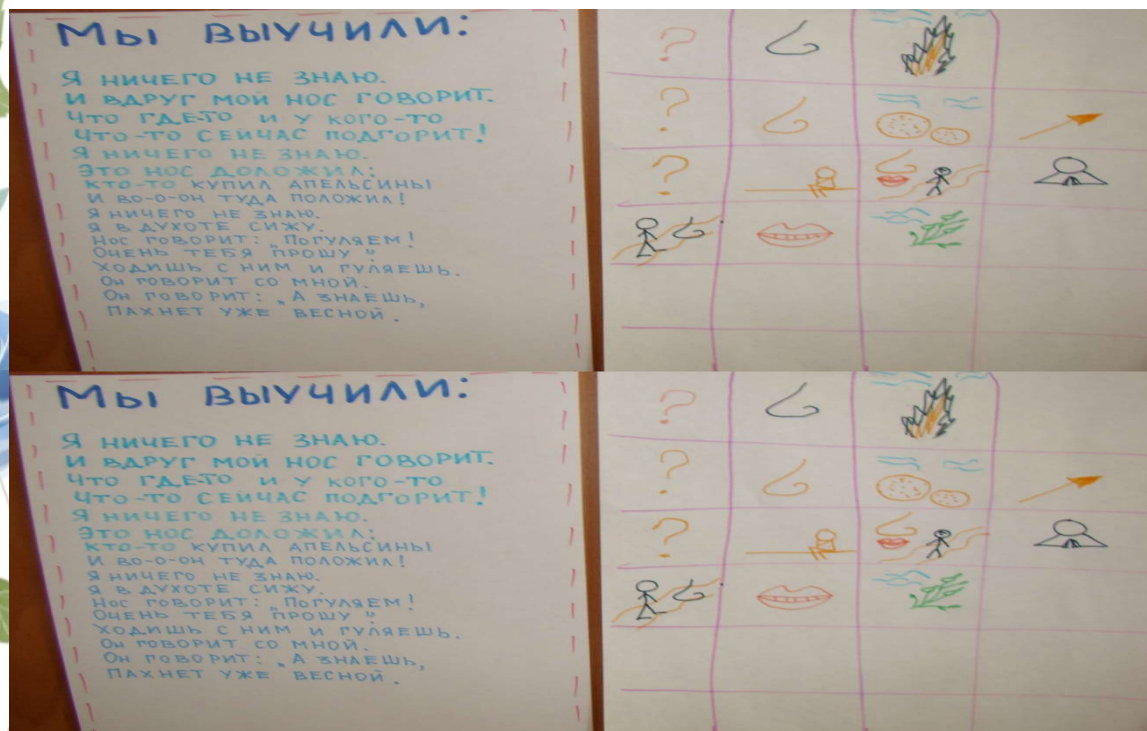 Мы выучили:
Я ничего не знаю.
И вдруг мой нос говорит.
Что где-то и у кого-то
Что-то сейчас подгорит!
Я ничего не знаю.
Это нос доложил:
Кто-то купил апельсины
И во-о-он туда положил!
Я ничего не знаю.
Я в духоте сижу.
Нос говорит: „Погуляем!
Очень тебя прошу”
Ходишь с ним и гуляешь.
Он говорит со мной.
Он говорит: „А знаешь,
Пахнет уже весной.
?
?
?
Мы выучили:
Я ничего не знаю.
И вдруг мой нос говорит.
Что где-то и у кого-то
Что-то сейчас подгорит!
Я ничего не знаю.
Это нос доложил:
Кто-то купил апельсины
И во-о-он туда положил!
Я ничего не знаю.
Я в духоте сижу.
Нос говорит: „Погуляем!
Очень тебя прошу”
Ходишь с ним и гуляешь.
Он говорит со мной.
Он говорит: „А знаешь,
Пахнет уже весной.
?
?
?